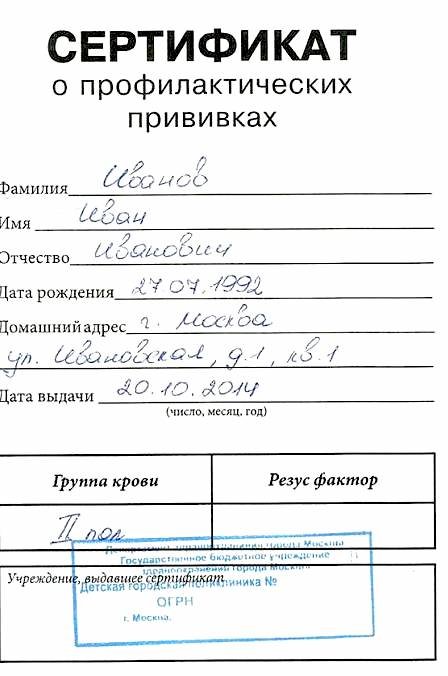 СЕРТИФИКАТ
о профилактических
прививках
Фамилия Иванов
Имя Иван
Отчество Иванович
Дата рождения 27.07.1992
Домашний адрес г. Москва
ул. Ивановская, д.1, кв.1
Дата выдачи 20.10.2014
(число, месяц, год)
Группа крови Резус фактор
II пол
Департамент здравоохранения города Москвы
Государственное бюджетное учреждение
здравоохранения города Москвы
Учреждение, выдавшее сертификат
Детская городская поликлиника №
ОГРН
г. Москва.